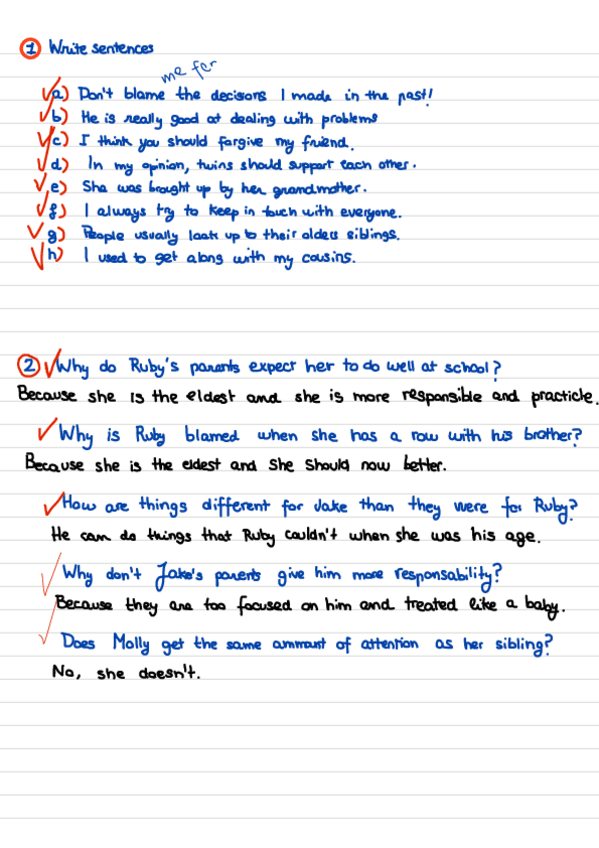 1 Write sentences
me for
a) Don't blame the decisions I made in the past!
b) He is really good at dealing with problems
c) I think you should forgive my friend.
d) In my opinion, twins should support each other.
e) She was brought up by her grandmother.
f) I always try to keep in touch with everyone.
g) People usually look up to their olders siblings.
h) I used to get along with my cousins.
2 Why do Ruby's parents expect her to do well at school?
Because she is the eldest and she is more responsible and practicle.
Why is Ruby blamed when she has a row with his brother?
Because she is the eldest and she should now better.
How are things different for Jake than they were for Ruby?
He can do things that Ruby couldn't when she was his age.
Why don't Jake's parents give him more responsability?
Because they are too focused on him and treated like a baby.
Does Molly get the same ammount of attention as her sibling?
No, she doesn't.